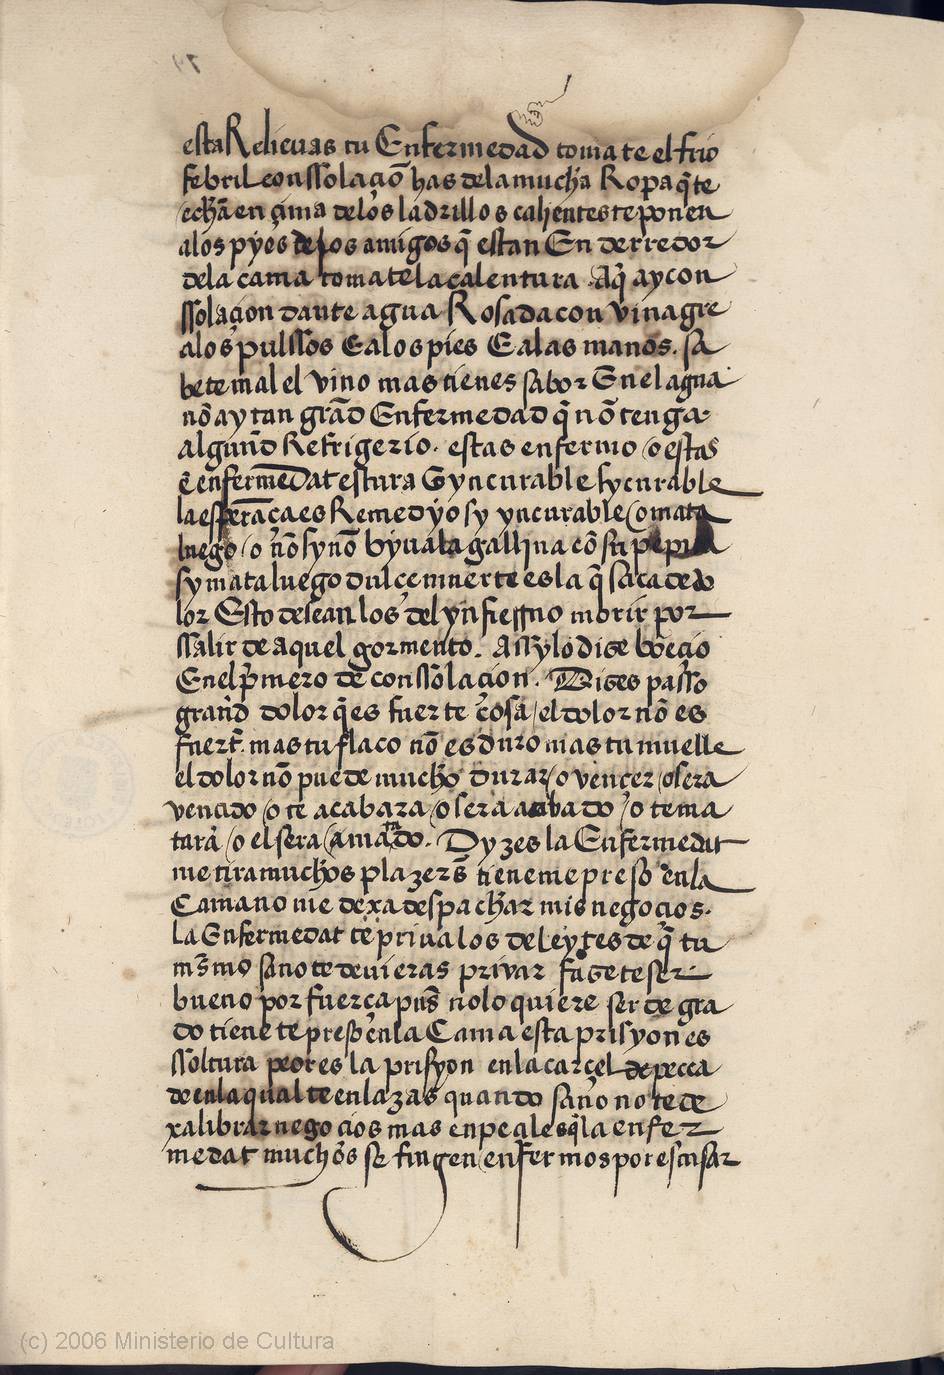 esta Relievas tu Enfermedad tomate el frio
febril conssolaçiō has dela mucha Ropa q̄ te
echā en çima delos ladrillos calientes te ponen
alos pyes delos amigos q̄ estan En derredor
dela cama tomate la calentura . Aq̄ ay con
ssolaçion dante agua Rosada con vinagre
alos pulssos E alos pies E alas manos . sa
bete mal el vino mas tienes sabor En el agua
nō ay tan grād Enfermedad q̄ nō tenga
algund Refrigerio . estas enfermo / o estas
ē enfermedat es tura Gyncurable sy curable
la esperāça es Remedyo sy yncurable / o mata
luego / o nō sy nō byua la gallina cō su pepita
sy mata luego dulçe muerte es la q̄ saca de do
lor Esto desean los del ynfierno morir por
ssalir de aquel tormento . Assy lo dize boeçio
En el p̄mero de conssolaçion . Dizes passo
grand dolor q̄ es fuerte cosa / el dolor nō es
fuert̄ . mas tu flaco nō es duro mas tu muelle
el dolor nō puede mucho durar / o vençer / o sera
vençido / o te acabara / o sera acabado / o te ma
tara / o el sera amatado . Dyzes la Enfermedat
me tira muchos plazer̄s tieneme preso en la
Cama no me dexa despachar mis negoçios .
La Enfermedat te priua los deleytes de q̄ tu
m̄smo sano te deuieras privar fazete ser
bueno por fuerça pus̄ no lo quiere ser de gra
do tienete preso en la Cama esta prisyon es
ssoltura peor es la prisyon en la carcel de pecca
do en la qual te enlazas quando sano no te de
xa librar negoçios mas enpeçales q̄ la enfer
medat muchos se fingen enfermos por escusar